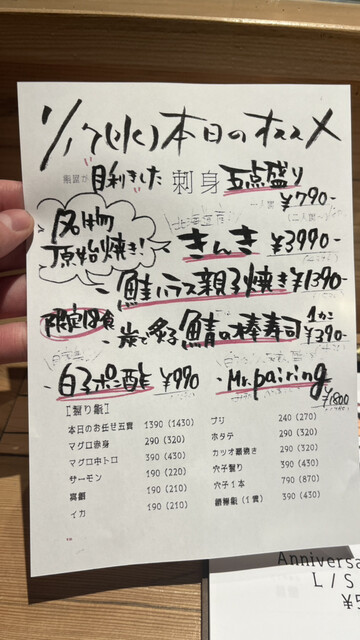 1/17(水)本日のオススメ
目利きました 刺身 五点盛り
一人前 ¥790-
(二人前〜)
名物
原始焼き! きんき ¥3990-
- 鮭ハラス親子焼き ¥1390-
限定8食 - 炭で炙る鯖の棒寿司 1カン ¥390-
- 白子ポン酢 ¥990 - Mr.pairing
¥1800
[握り鮨]
本日のお任せ五貫 1390 (1430)
マグロ赤身 290 (320)
マグロ中トロ 390 (430)
サーモン 190 (220)
真鯛 190 (210)
イカ 190 (210)
ブリ 240 (270)
ホタテ 290 (320)
カツオ藁焼き 290 (320)
穴子握り 390 (430)
穴子1本 790 (870)
(1貫) 390 (430)
Anniversa
L/S
¥5